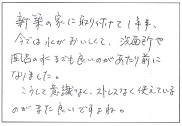 新築の家に取り付けて1年半、
今では水がおいしくて、洗面所や
風呂の水までも良いのがあたり前に
なりました。
こうして意識なく、ストレスなく使えている
のがまた良いですよね。